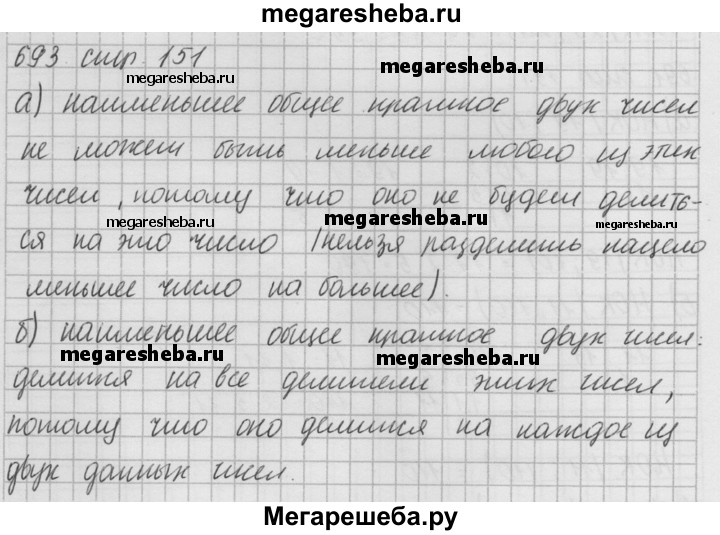 megaresheba.ru
693 стр. 151
megaresheba.ru
megaresheba.ru
а) наименьшее общее кратное двух чисел
не может быть меньше любого из этих
чисел, потому что оно не будет делить-
megaresheba.ru
megaresheba.ru
megaresheba.ru
ся на это число (нельзя разделить нацело
меньшее число на большее).
б) наименьшее общее кратное двух чисел:
megaresheba.ru
megaresheba.ru
делится на все делители этих чисел,
потому что оно делится на каждое из
двух данных чисел.
Мегарешеба.ру